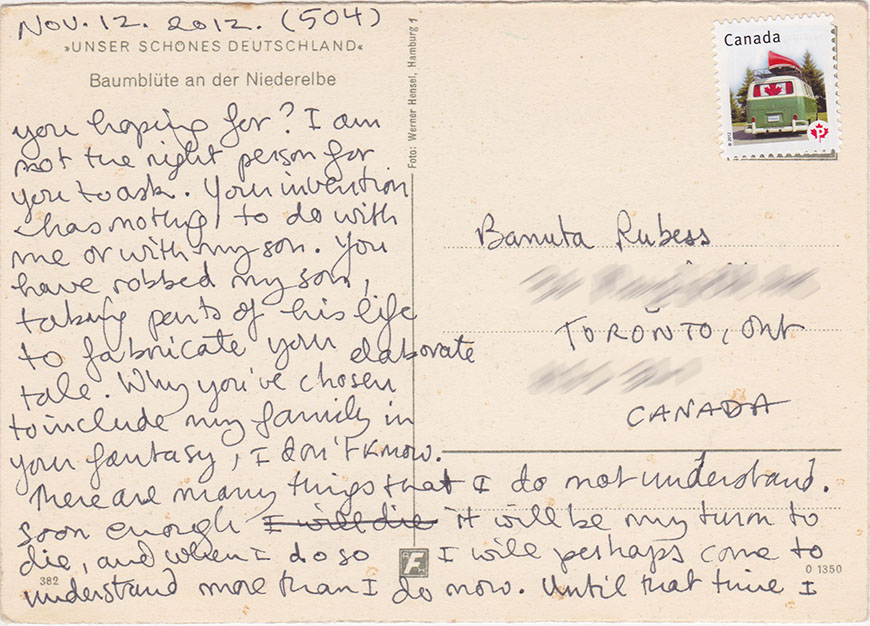 Nov. 12. 2012. (504)
»UNSER SCHÖNES DEUTSCHLAND«
Baumblüte an der Niederelbe
you hoping for? I am
not the right person for
you to ask. Your invention
has nothing to do with
me or with my son. You
have robbed my son,
taking parts of his life
to fabricate your elaborate
tale. Why you've chosen
to include my family in
your fantasy, I don't know.
There are many things that I do not understand.
soon enough I will die it will be my turn to
die, and when I do so I will perhaps come to
understand more than I do now. Until that time I
382
F
0 1350
Foto: Werner Hensel, Hamburg 1
Canada
P
Banuta Rubess
TORONTO, ONT
CANADA